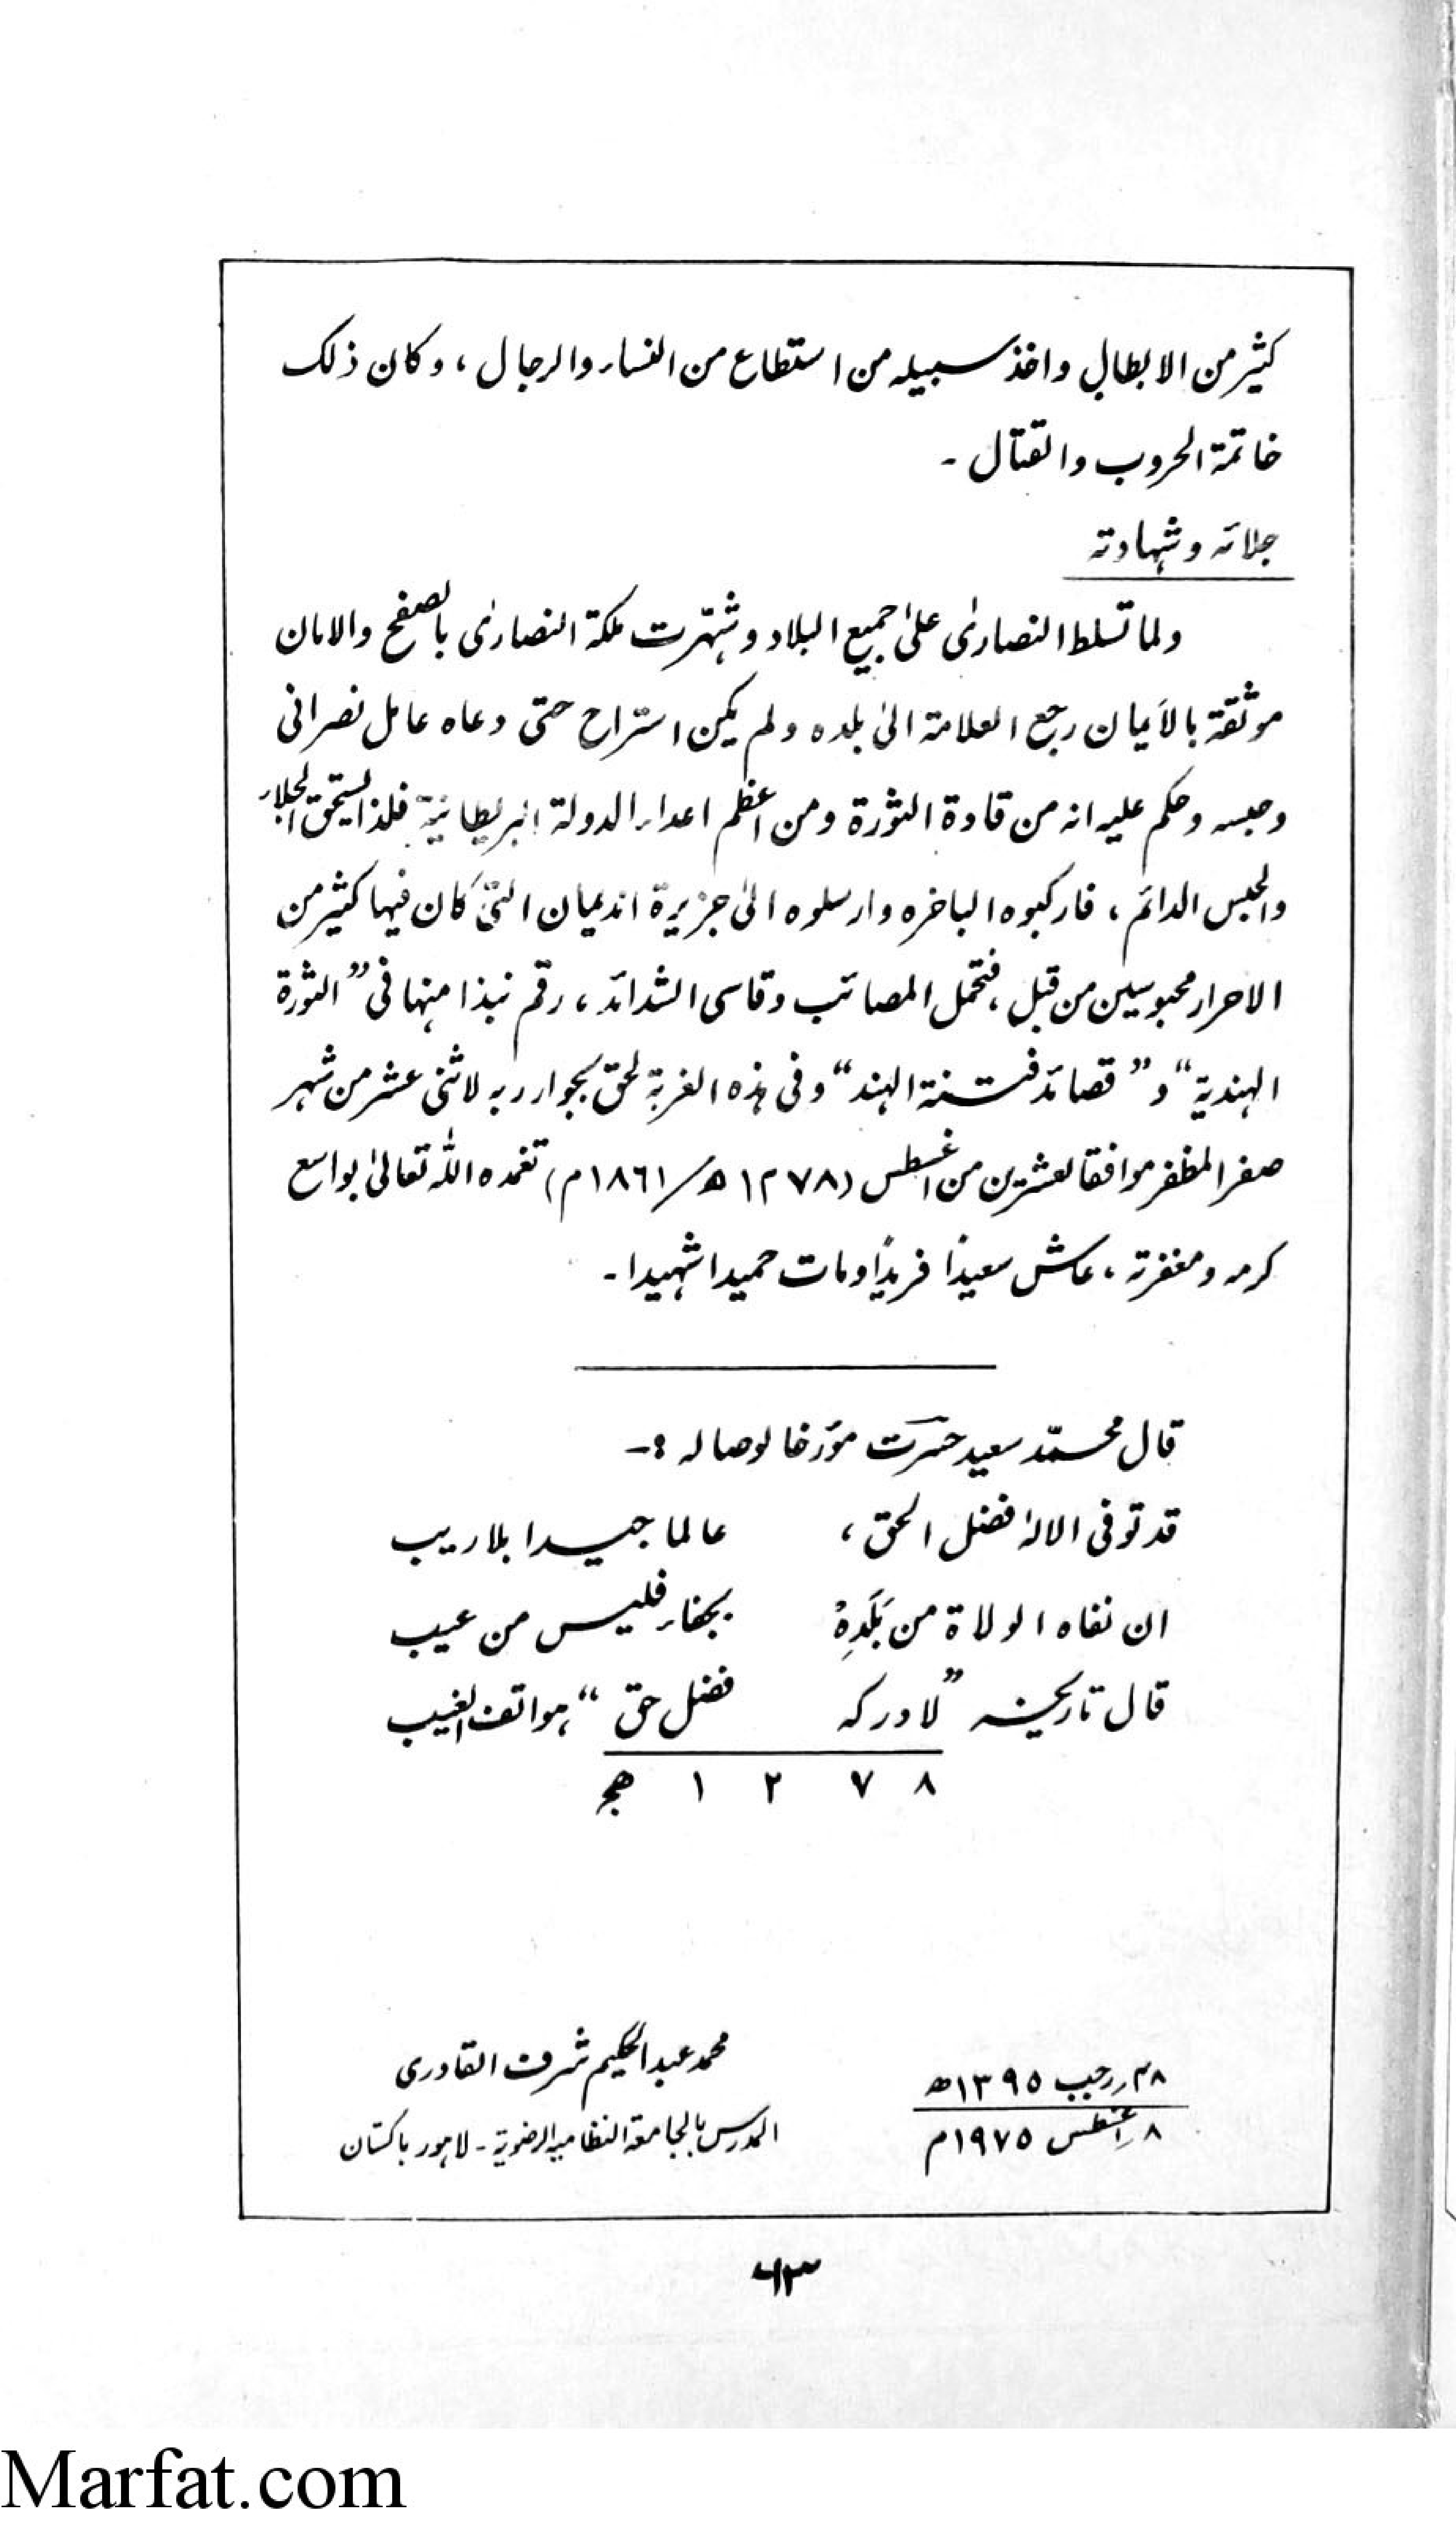 كثير من الابطال واخذ سبيله من استطاع من النساء والرجال ، وكان ذلك
خاتمة الحروب والقتال -
جلائه وشهادته
ولما تسلط النصارىٰ علىٰ جميع البلاد وشهّرت ملكة النصارىٰ بالصفح والامان
موثقة بالأيمان رجع العلامة الىٰ بلده ولم يكن استراح حتى دعاه عامل نصرانى
وحبسه وحكم عليه انه من قادة الثورة ومن اعظم اعداء الدولة البريطانية فلذا يستحق الجلاء
والحبس الدائم ، فاركبوه الباخره وارسلوه الىٰ جزيرة انديمان التى كان فيها كثير من
الاحرار محبوسين من قبل ، فتحمل المصائب وقاسى الشدائد ، رقم نبذا منها فى ”الثورة
الهندية“ و ”قصائد فتنة الهند“ وفى هذه الغربة لحق بجوار ربه لاثنى عشر من شهر
صفر المظفر موافقا لعشرين من اغسطس (١٢٧٨ھ/١٨٦١م) تغمده الله تعالىٰ بواسع
كرمه ومغفرته ، عاش سعيدًا فريدًا ومات حميدا شهيدا -
قال محمّد سعيد حسرت مؤرخا لوصاله :-
قد توفى الالهٰ فضل الحق ، عالما جيدا بلا ريب
ان نفاه الولاة من بَلَدِهٖ بجفاء فليس من عيب
قال تاريخه ”لادركه فضل حق“ هواتف الغيب
١٢٧٨ ھجر
محمد عبد الحكيم شرف القادرى
المدرس بالجامعة النظامية الرضوية - لاہور باكستان
رجب ١٣٩٥ھ
٨ اغسطس ١٩٧٥م
٦٣
Marfat.com